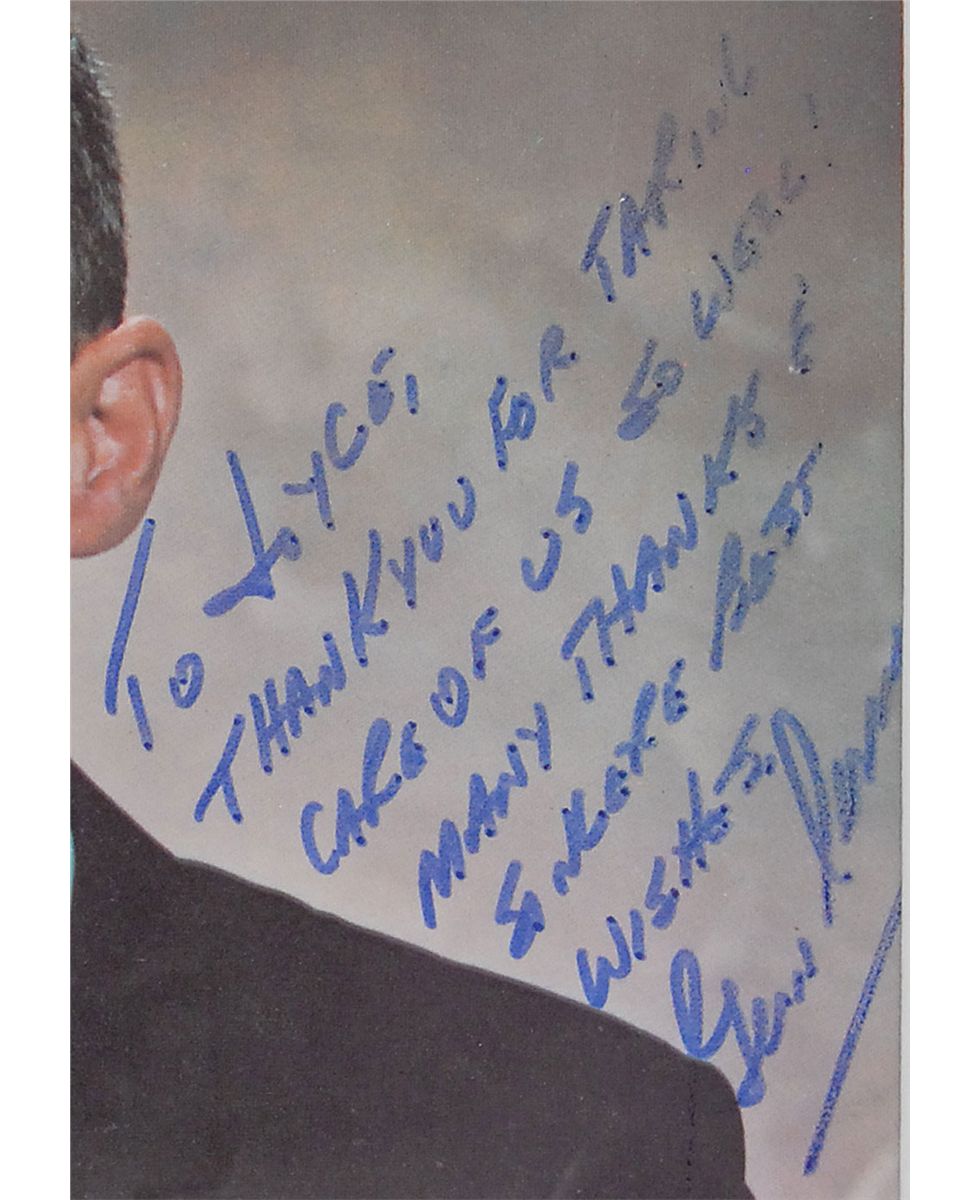 TO JOYCE,
THANKYOU FOR TAKING
CARE OF US SO WELL!
MANY THANKS &
SINCERE BEST
WISHES